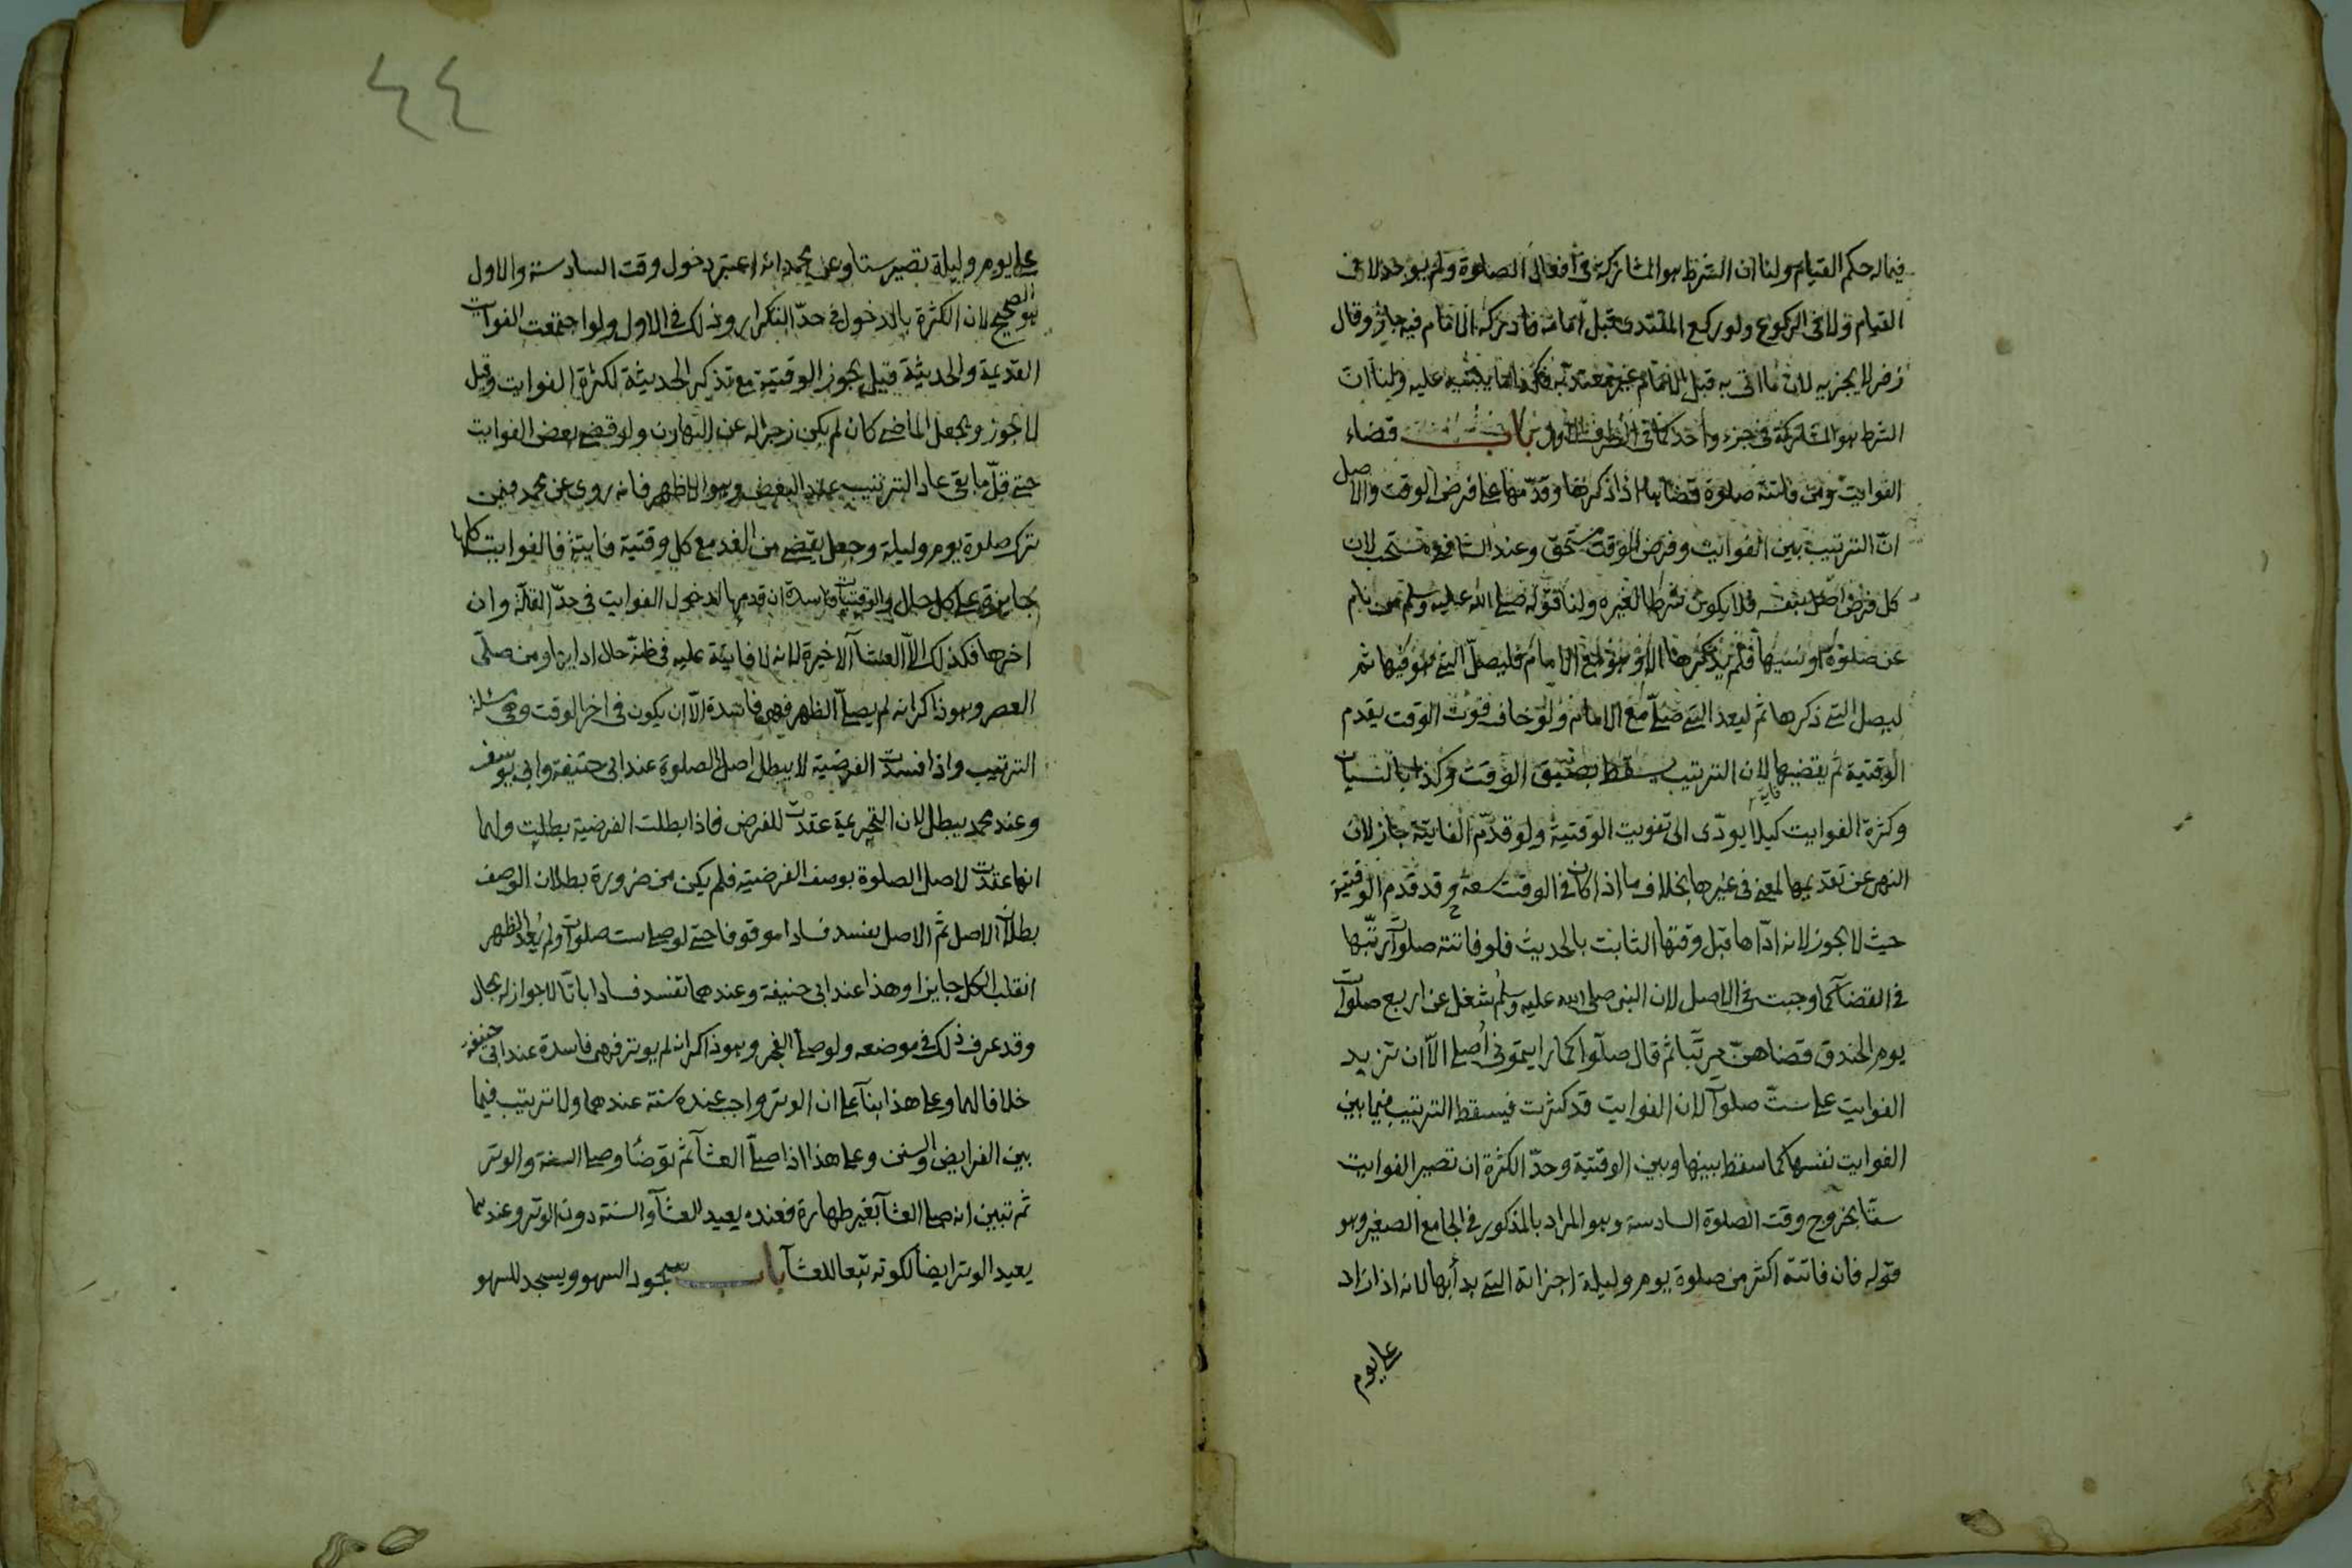 فيما له حكم القيام ولنا ان الشرط هو المشاركة في افعال الصلوة ولم يوجد لا في
القيام ولا في الركوع ولو ركع المقتدى قبل امامه فادركه الامام فيه جاز وقال
زفر لا يجزيه لان ما اتى به قبل الامام غير معتد به فكذا ما يبتنيه عليه ولنا ان
الشرط هو المشاركة في جزء واحد كما في الطرف الاول باب قضاء
الفوايت ومن فاتته صلوة قضاها اذا ذكرها وقدمها على فرض الوقت والاصل
ان الترتيب بين الفوايت وفرض الوقت مستحق وعند الشافعي مستحب لان
كل فرض اصل بنفسه فلا يكون شرطا لغيره ولنا قوله صلى الله عليه وسلم من نام
عن صلوة او نسيها فلم يذكرها الا وهو مع الامام فليصل التي هو فيها ثم
ليصل التي ذكرها ثم ليعد التي صلى مع الامام ولو خاف فوت الوقت يقدم
الوقتية ثم يقضيها لان الترتيب يسقط بضيق الوقت وكذا بالنسيان
وكثرة الفوايت كيلا يودى الى تفويت الوقتية ولو قدم الفايتة جاز لان
النهى عن تقديمها لمعنى في غيرها بخلاف ما اذا كان في الوقت سعة وقد قدم الوقتية
حيث لا يجوز لانه اداها قبل وقتها الثابت بالحديث فلو فاتته صلوات رتبها
في القضآ كما وجبت في الاصل لان النبى صلى الله عليه وسلم شغل عن اربع صلوات
يوم الخندق فقضاهن مرتبا ثم قال صلوا كما رايتمونى اصلى الا ان تزيد
الفوايت على ست صلوات لان الفوايت قد كثرت فيسقط الترتيب فيما بين
الفوايت نفسها كما سقط بينها وبين الوقتية وحد الكثرة ان تصير الفوايت
ستا بخروج وقت الصلوة السادسة وهو المراد بالمذكور في الجامع الصغير وهو
قوله فان فاتته اكثر من صلوة يوم وليلة اجزاته التي بدأ بها لانه اذا زاد
على يوم
٤٤
على يوم وليلة تصير ستا وعن محمد انه اعتبر دخول وقت السادسة والاول
هو الصحيح لان الكثرة بالدخول في حد التكرار وذلك في الاول ولو اجتمعت الفوات
القديمة والحديثة قيل يجوز الوقتية مع تذكر الحديثة لكثرة الفوايت وقيل
لا يجوز ويجعل الماضى كان لم يكن زجرا له عن التهاون ولو قضى بعض الفوايت
حتى قل ما بقى عاد الترتيب عند البعض وهو الاظهر فانه روى عن محمد فيمن
ترك صلوة يوم وليلة وجعل يقضى من الغد مع كل وقتية فايتة فالفوايت كلها
جايزة على كل حال والوقتيات فاسدة ان قدمها لدخول الفوايت في حد القلة وان
اخرها فكذلك الا العشآ الاخيرة لانه لا فايتة عليه في ظنه حال ادايها ومن صلى
العصر وهو ذاكر انه لم يصل الظهر فهى فاسدة الا ان يكون في اخر الوقت وهى مسئلة
الترتيب واذا فسدت الفرضية لا يبطل اصل الصلوة عند ابى حنيفة وابى يوسف
وعند محمد يبطل لان التحريمة عقدت للفرض فاذا بطلت الفرضية بطلت ولهما
انها عقدت لاصل الصلوة بوصف الفرضية فلم يكن من ضرورة بطلان الوصف
بطلان الاصل ثم الاصل يفسد فسادا موقوفا حتى لو صلى ست صلوات ولم يعد الظهر
انقلب الكل جايزا وهذا عند ابى حنيفة وعندهما تفسد فسادا باتا لا جواز له بحال
وقد عرف ذلك في موضعه ولو صلى الفجر وهو ذاكر انه لم يوتر فهى فاسدة عند ابى حنيفة
خلافا لهما وعلى هذا بنآ على ان الوتر واجب عنده سنة عندهما ولا ترتيب فيما
بين الفرايض والسنن وعلى هذا اذا صلى العشآ ثم توضأ وصلى السنة والوتر
ثم تبين انه صلى العشآ بغير طهارة فعنده يعيد العشآ والسنة دون الوتر وعندهما
يعيد الوتر ايضا لكونه تبعا للعشآ باب سجود السهو ويسجد للسهو